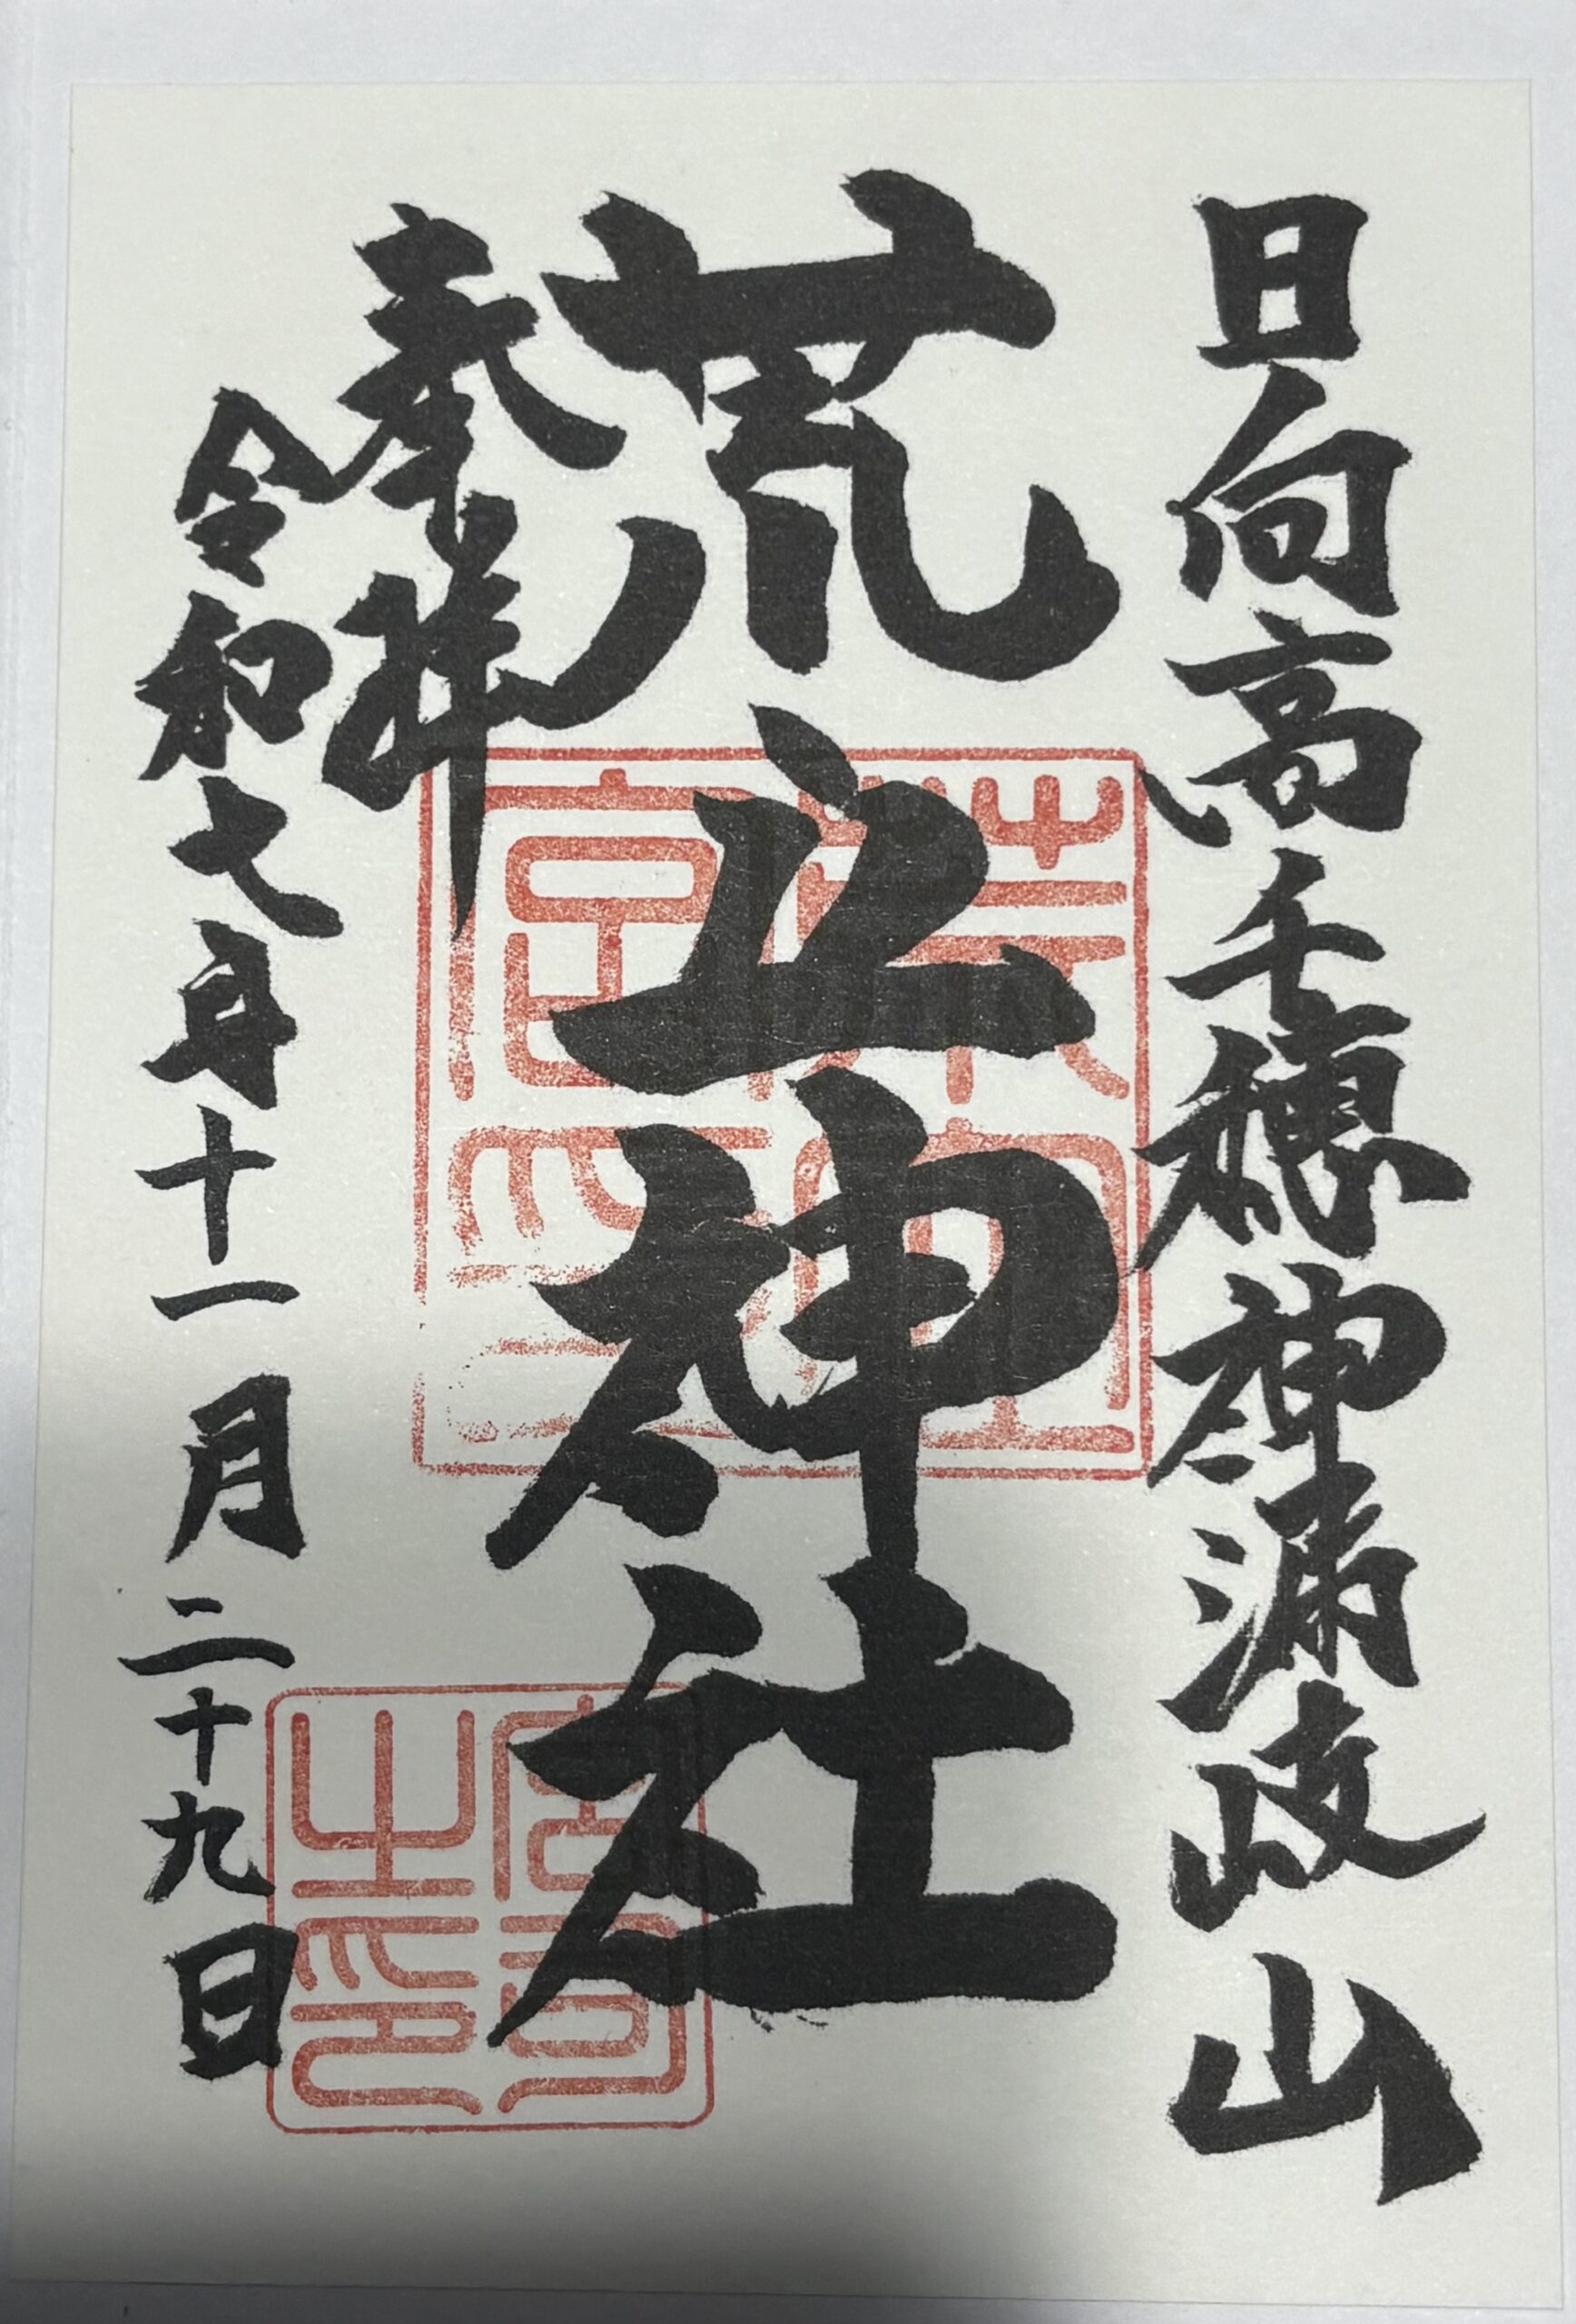 日向高千穂神漏岐山
荒立神社
奉拝
令和七年十一月二十九日
宮司
之印